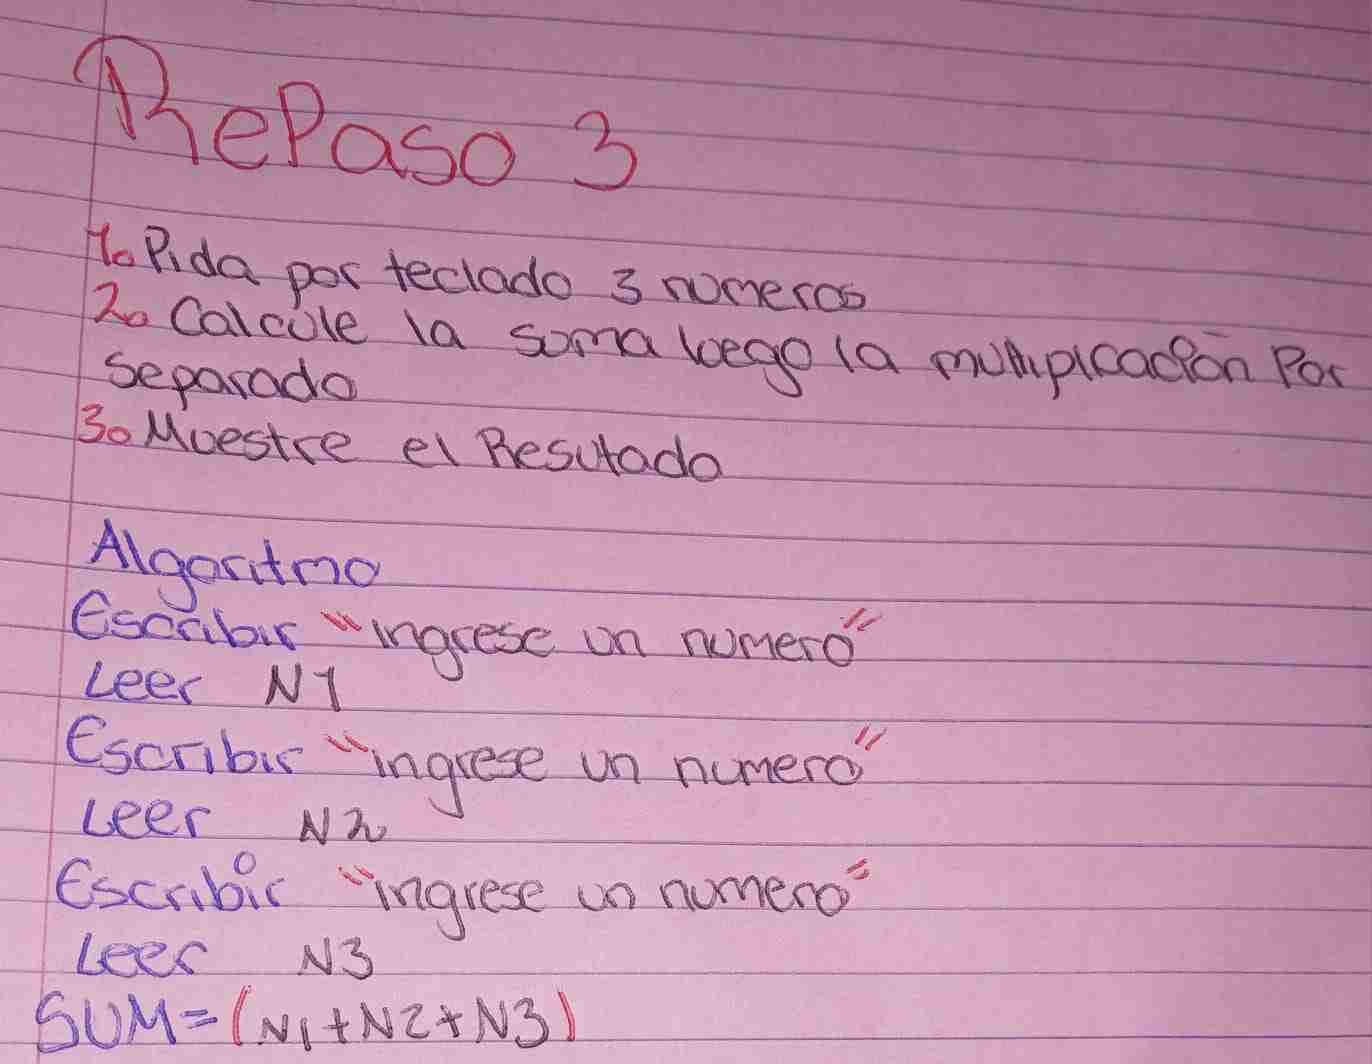 RePaso 3
1o Pida por teclado 3 numeros
2o Calcule la suma luego la multiplicación Por
Separado
3o Muestre el Resutado
Algoritmo
Escribir "ingrese un numero"
Leer N1
Escribir "ingrese un numero"
Leer N2
Escribir "ingrese un numero"
Leer N3
SUM=(N1+N2+N3)